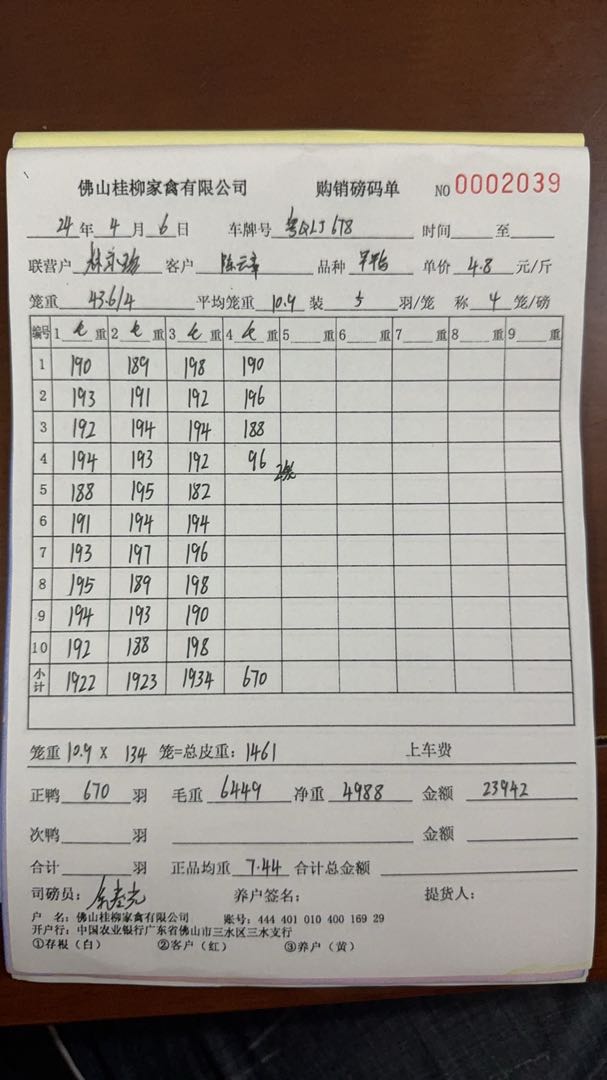 佛山桂柳家禽有限公司 购销磅码单 NO 0002039
24 年 4 月 6 日 车牌号 粤QLJ678 时间 至
联营户 客户 陈云章 品种 单价 4.8 元/斤
笼重 43.6/4 平均笼重 10.9 装 5 羽/笼 称 4 笼/磅
编号 1 毛 重 2 毛 重 3 毛 重 4 毛 重 5 重 6 重 7 重 8 重 9 重
1 190 189 198 190
2 193 191 192 196
3 192 194 194 188
4 194 193 192 96 2笼
5 188 195 182
6 191 194 194
7 193 197 196
8 195 189 198
9 194 193 190
10 192 188 198
小计 1922 1923 1934 670
笼重 10.9 X 134 笼=总皮重: 1461 上车费
正鸭 670 羽 毛重 6449 净重 4988 金额 23942
次鸭 羽 金额
合计 羽 正品均重 7.44 合计总金额
司磅员: 养户签名: 提货人:
户 名: 佛山桂柳家禽有限公司 账号: 444 401 010 400 169 29
开户行: 中国农业银行广东省佛山市三水区三水支行
①存根(白) ②客户(红) ③养户(黄)